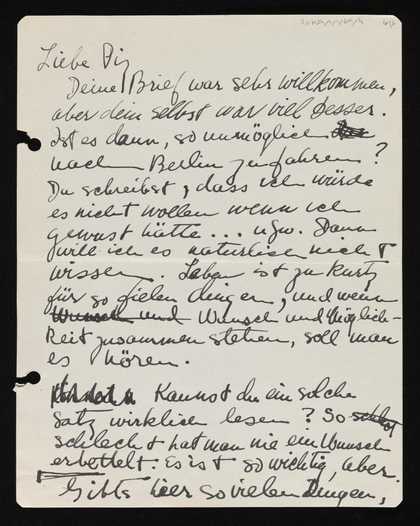 Liebe Diz
Deine Brief war sehr willkommen,
aber dein selbst war viel besser.
Ist es dann, so unmöglich
nach Berlin zu fahren?
Du schreibst, dass ich würde
es nicht wollen wenn ich
gewust hätte... usw. Dann
will ich es natürlich nicht
wissen. Leben ist zu kurtz
für so fielen dingen, und wenn
Wunsch und Wunsch und Möglich-
keit zusammen stehen, soll man
es hören.
Kannst du ein solche
Satz wirklich lesen? So
schlecht hat man nie ein Wunsch
erbettelt. Es ist so wichtig, aber.
Gibts hier so vielen dingen,